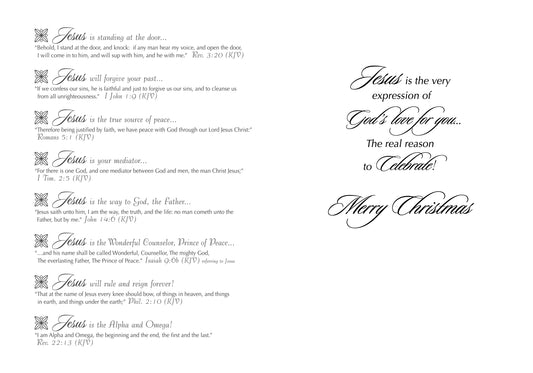 Jesus is standing at the door...
"Behold, I stand at the door, and knock: if any man hear my voice, and open the door,
I will come in to him, and will sup with him, and he with me." Rev. 3:20 (KJV)
Jesus will forgive your past...
"If we confess our sins, he is faithful and just to forgive us our sins, and to cleanse us
from all unrighteousness." I John 1:9 (KJV)
Jesus is the true source of peace...
"Therefore being justified by faith, we have peace with God through our Lord Jesus Christ:"
Romans 5:1 (KJV)
Jesus is your mediator...
"For there is one God, and one mediator between God and men, the man Christ Jesus;"
I Tim. 2:5 (KJV)
Jesus is the way to God, the Father...
"Jesus saith unto him, I am the way, the truth, and the life: no man cometh unto the
Father, but by me." John 14:6 (KJV)
Jesus is the Wonderful Counselor, Prince of Peace...
"...and his name shall be called Wonderful, Counsellor, The mighty God,
The everlasting Father, The Prince of Peace." Isaiah 9:6b (KJV) referring to Jesus
Jesus will rule and reign forever!
"That at the name of Jesus every knee should bow, of things in heaven, and things
in earth, and things under the earth;" Phil. 2:10 (KJV)
Jesus is the Alpha and Omega!
"I am Alpha and Omega, the beginning and the end, the first and the last."
Rev. 22:13 (KJV)
Jesus is the very
expression of
God's love for you...
The real reason
to Celebrate!
Merry Christmas